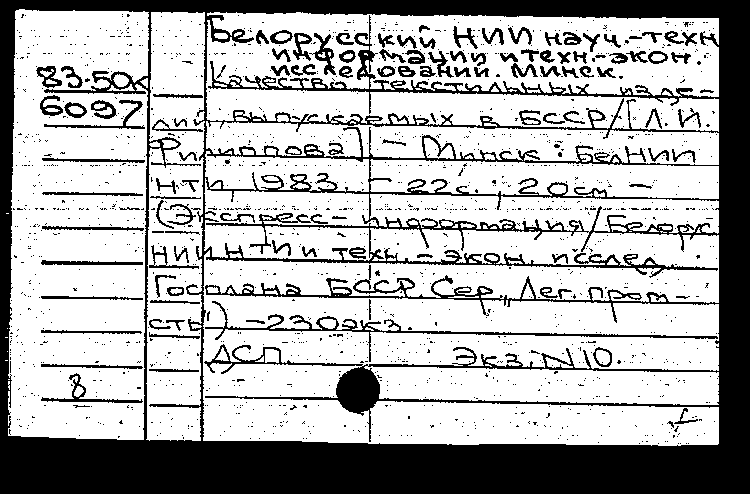 Белорусский НИИ науч.-техн
информации и техн.-экон.
исследований. Минск.
83.50к
Качество текстильных изде-
6097
лий, выпускаемых в БССР/[Л.И.
Филиппова] - Минск: БелНИИ
НТИ, 1983. - 22с.; 20см -
(Экспресс-информация/Белорус
НИИ НТИ и техн.-экон. исслед.
Госплана БССР. Сер. „Лег. пром-
сть"). - 230экз.
ДСП. Экз. N10.
8